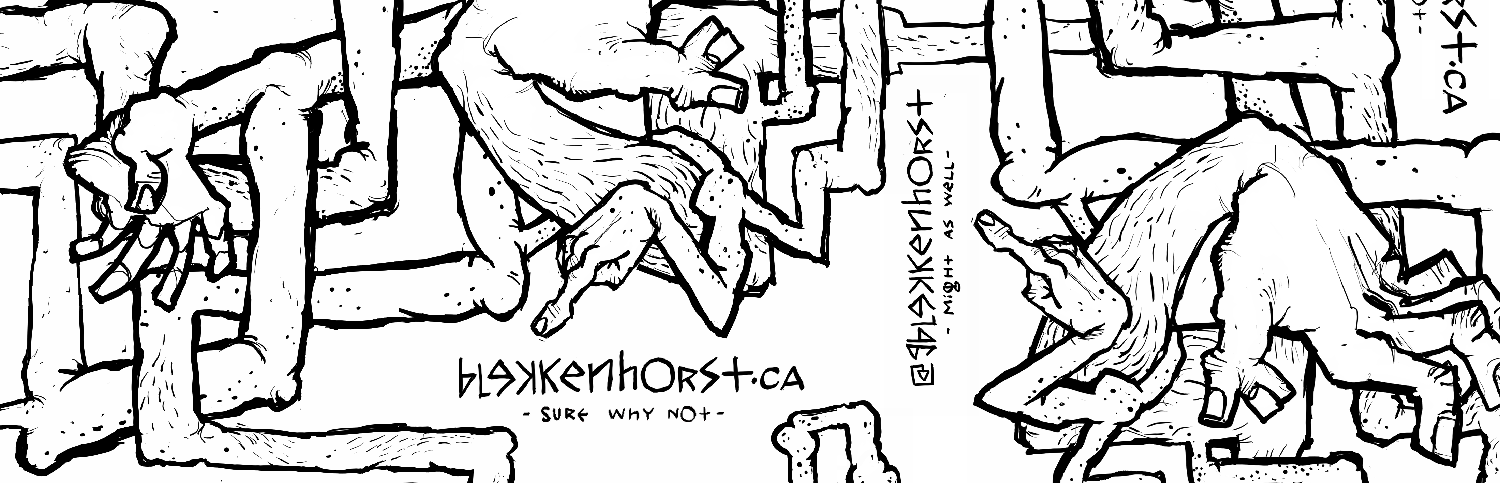 blekkenhorst.ca
- SURE WHY NOT -
@blekkenhorst
- Might AS WELL -
ST.CA
OT -